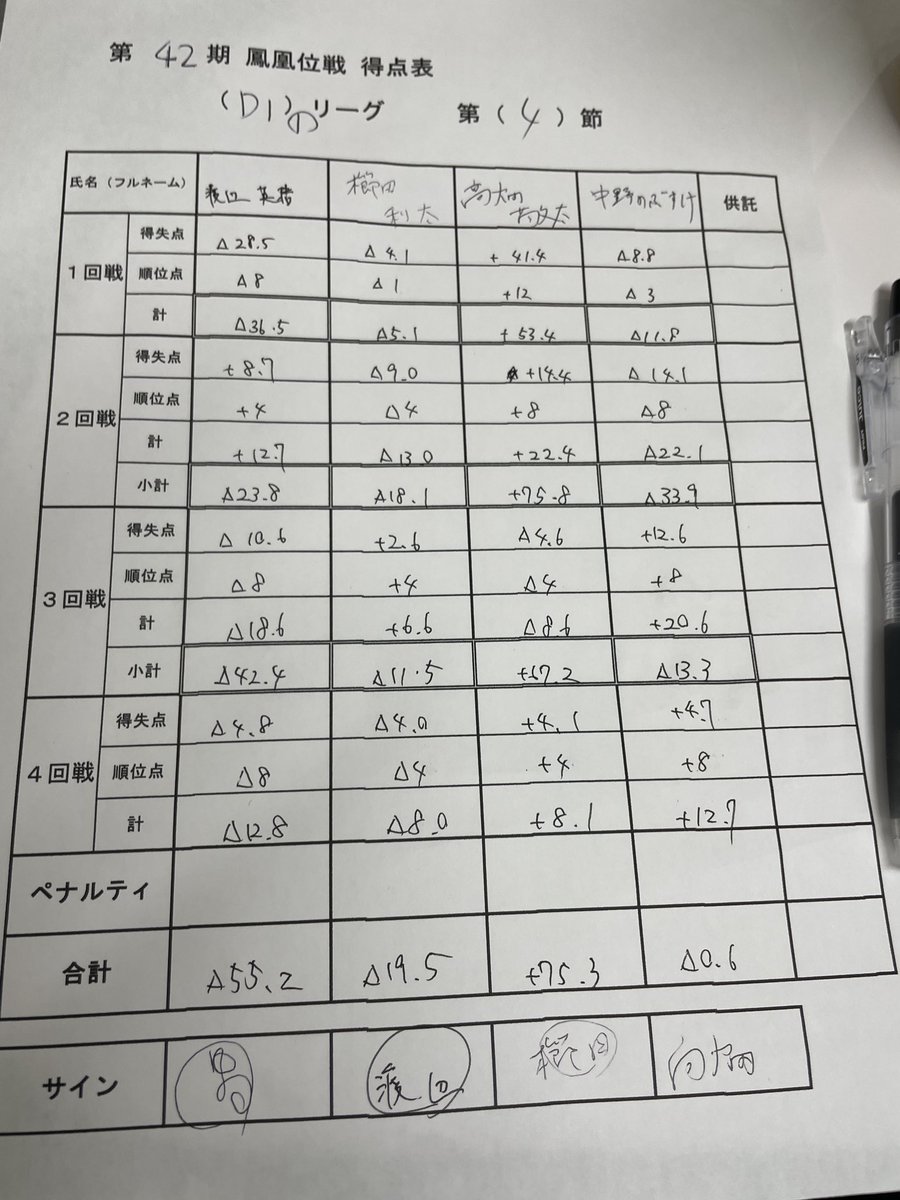 第 42 期 鳳凰位戦 得点表
(D1の)リーグ 第(4)節
氏名（フルネーム） 渡辺 英 櫛田 利太 高大田 敏太 中野のぶすけ 供託
1回戦
得失点 △28.5 △4.1 +41.4 △8.8
順位点 △8 △1 +12 △3
計 △36.5 △5.1 +53.4 △11.8
2回戦
得失点 +8.7 △9.0 +14.4 △14.1
順位点 +4 △4 +8 △8
計 +12.7 △13.0 +22.4 △22.1
小計 △23.8 △18.1 +75.8 △33.9
3回戦
得失点 △10.6 +2.6 △4.6 +12.6
順位点 △8 +4 △4 +8
計 △18.6 +6.6 △8.6 +20.6
小計 △42.4 △11.5 +67.2 △13.3
4回戦
得失点 △4.8 △4.0 +4.1 +4.7
順位点 △8 △4 +4 +8
計 △12.8 △8.0 +8.1 +12.7
ペナルティ
合計 △55.2 △19.5 +75.3 △0.6
サイン 渡辺 櫛田